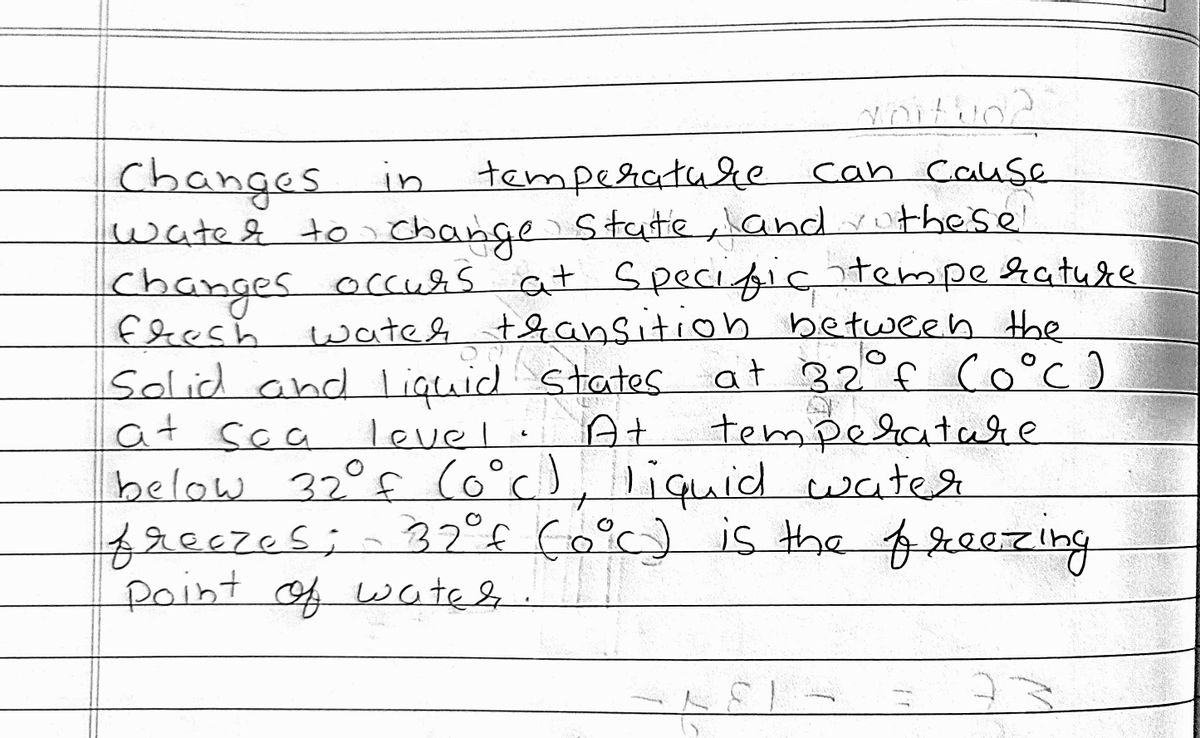 Changes in temperature can cause
water to change state, and these
changes occurs at specific temperature
fresh water transition between the
solid and liquid states at 32°f (0°c)
at sea level. At temperature
below 32°f (0°c), liquid water
freezes; 32°f (0°c) is the freezing
point of water.